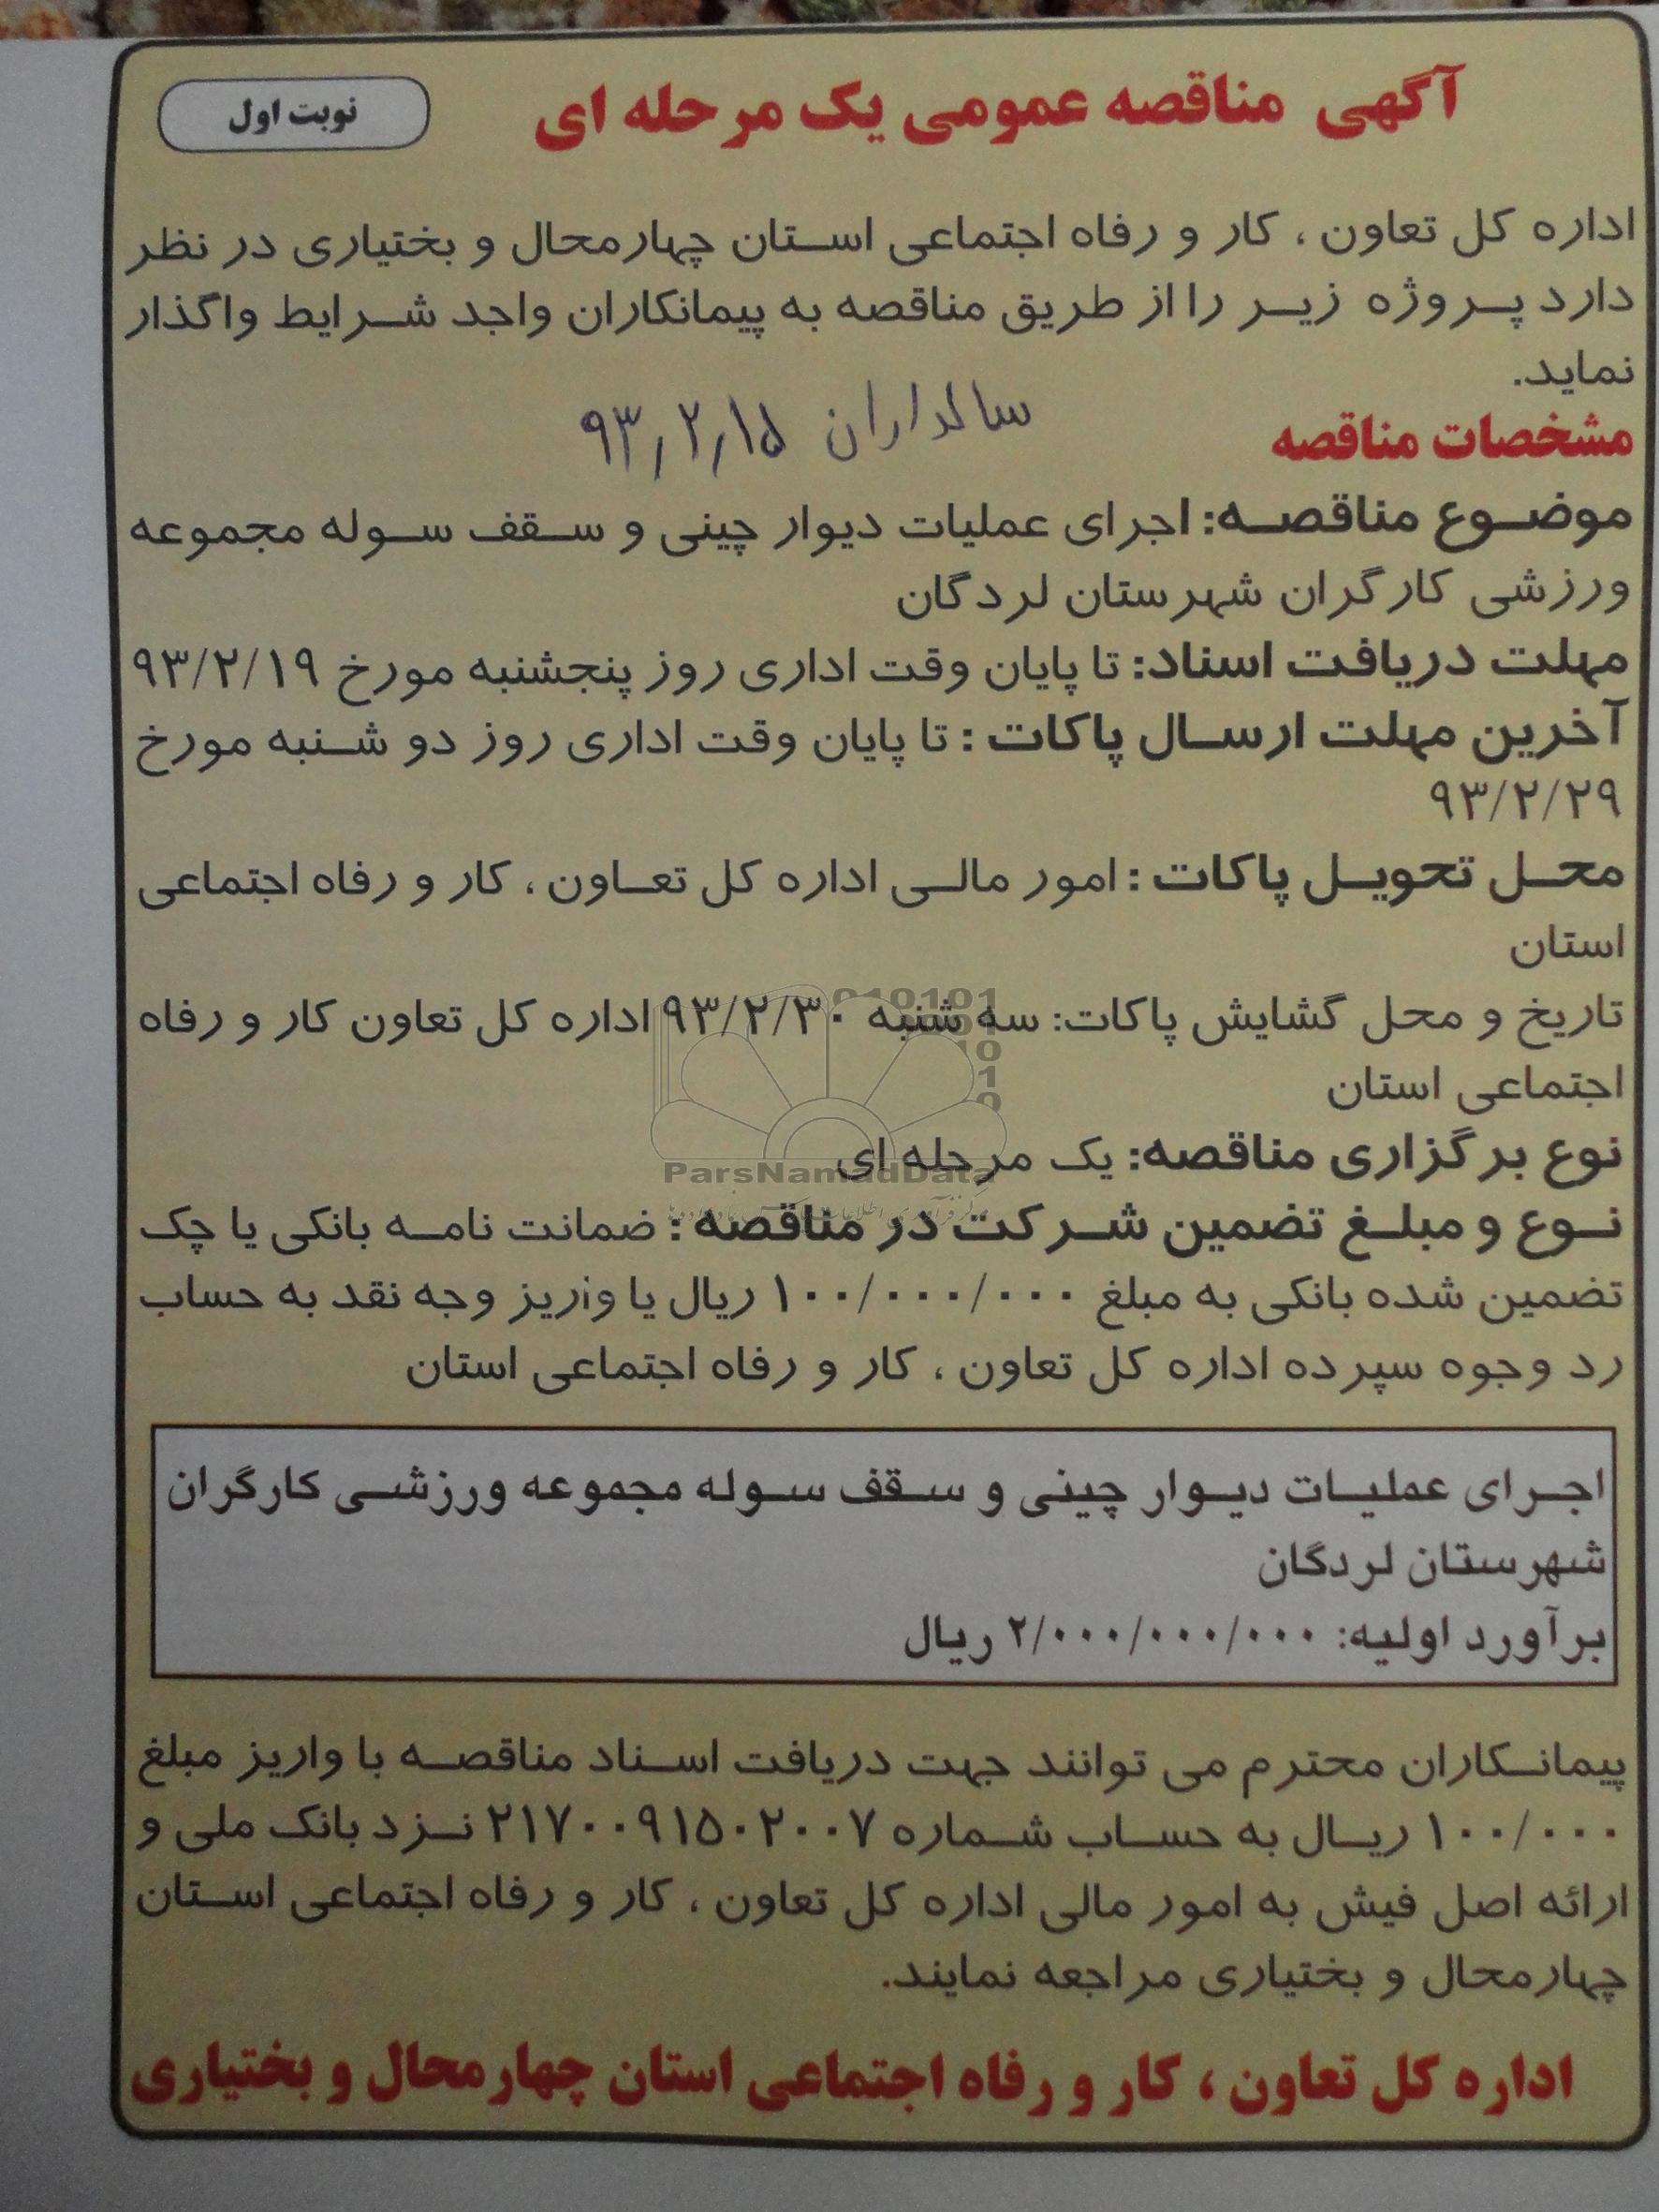 آگهی مناقصه عمومی یک مرحله ای
نوبت اول
اداره کل تعاون ، کار و رفاه اجتماعی استان چهارمحال و بختیاری در نظر
دارد پروژه زیر را از طریق مناقصه به پیمانکاران واجد شرایط واگذار
نماید.
۹۳٫۲٫۱۵
مشخصات مناقصه
موضوع مناقصه: اجرای عملیات دیوار چینی و سقف سوله مجموعه
ورزشی کارگران شهرستان لردگان
مهلت دریافت اسناد: تا پایان وقت اداری روز پنجشنبه مورخ ۹۳/۲/۱۹
آخرین مهلت ارسال پاکات : تا پایان وقت اداری روز دو شنبه مورخ
۹۳/۲/۲۹
محل تحویل پاکات : امور مالی اداره کل تعاون ، کار و رفاه اجتماعی
استان
تاریخ و محل گشایش پاکات: سه شنبه ۹۳/۲/۳۰ اداره کل تعاون کار و رفاه
اجتماعی استان
نوع برگزاری مناقصه: یک مرحله ای
ParsNamadData
نوع و مبلغ تضمین شرکت در مناقصه : ضمانت نامه بانکی یا چک
تضمین شده بانکی به مبلغ ۱۰۰/۰۰۰/۰۰۰ ریال یا واریز وجه نقد به حساب
رد وجوه سپرده اداره کل تعاون ، کار و رفاه اجتماعی استان
اجرای عملیات دیوار چینی و سقف سوله مجموعه ورزشی کارگران
شهرستان لردگان
برآورد اولیه: ۲/۰۰۰/۰۰۰/۰۰۰ ریال
پیمانکاران محترم می توانند جهت دریافت اسناد مناقصه با واریز مبلغ
۱۰۰/۰۰۰ ریال به حساب شماره ۲۱۷۰۰۹۱۵۰۲۰۰۷ نزد بانک ملی و
ارائه اصل فیش به امور مالی اداره کل تعاون ، کار و رفاه اجتماعی استان
چهارمحال و بختیاری مراجعه نمایند.
اداره کل تعاون ، کار و رفاه اجتماعی استان چهارمحال و بختیاری